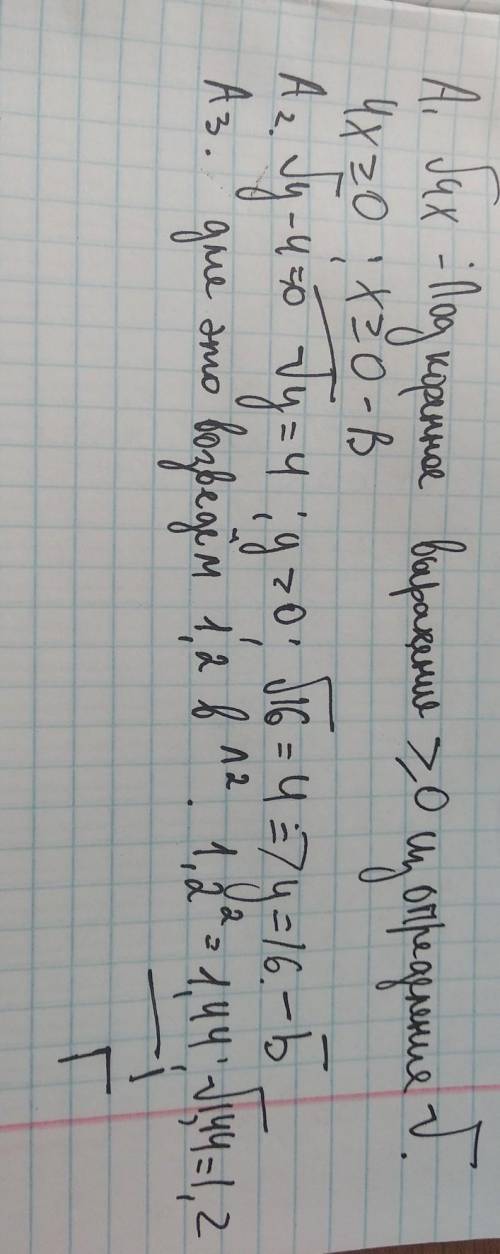 А1 √4x - Подкоренное выражение ≥0 из определения √.
4x≥0; x≥0 - В
А2. √y-4=0 √y=4; y≥0; √16=4 => y=16. - Б
А3. для это возведем 1,2 в n². 1,2²=1,44; √1,44=1,2
Г